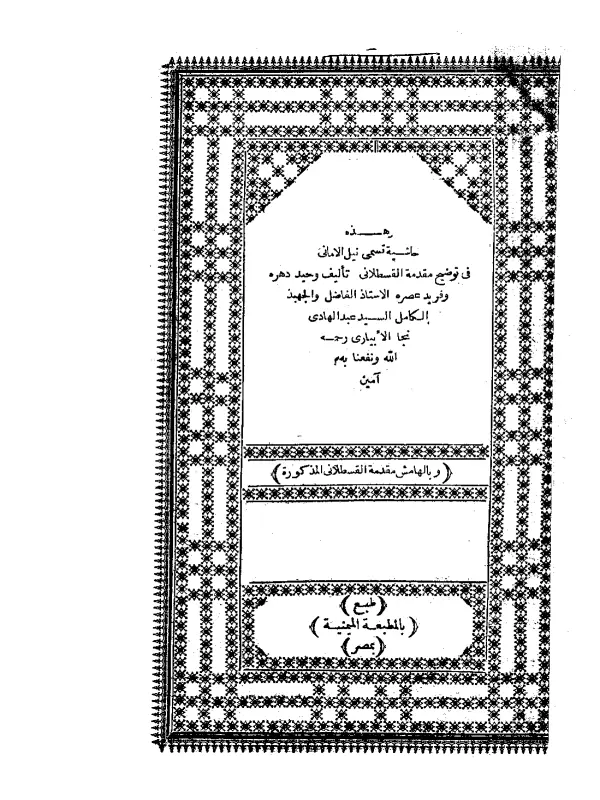 هـــذه
حاشية تسمى نيل الامانى
فى توضيح مقدمة القسطلانى تأليف وحيد دهره
وفريد عصره الاستاذ الفاضل والجهبذ
الكامل السيد عبدالهادى
نجا الأبيارى رحمه
الله ونفعنا به
آمين
﴿وبالهامش مقدمة القسطلانى المذكورة﴾
﴿طبع﴾
﴿بالمطبعة الميمنية﴾
﴿بمصر﴾